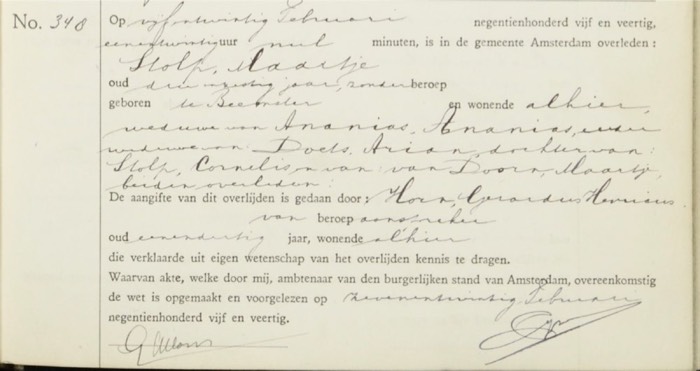 No. 340 Op vijfentwintig Februari negentienhonderd vijf en veertig,
eenentwintig uur nul minuten, is in de gemeente Amsterdam overleden :
Stolp, Maartje
oud drie en zestig jaar, zonder beroep
geboren te Beemster en wonende alhier,
weduwe van Ananias, Ananias, eerder
weduwe van Doets, Arian, dochter van:
Stolp, Cornelis en van van Doorn, Maartje,
beiden overleden.
De aangifte van dit overlijden is gedaan door: Horn, Gerardus Henricus
van beroep aanspreker
oud eenendertig jaar, wonende alhier
die verklaarde uit eigen wetenschap van het overlijden kennis te dragen.
Waarvan akte, welke door mij, ambtenaar van den burgerlijken stand van Amsterdam, overeenkomstig
de wet is opgemaakt en voorgelezen op zevenentwintig Februari
negentienhonderd vijf en veertig.